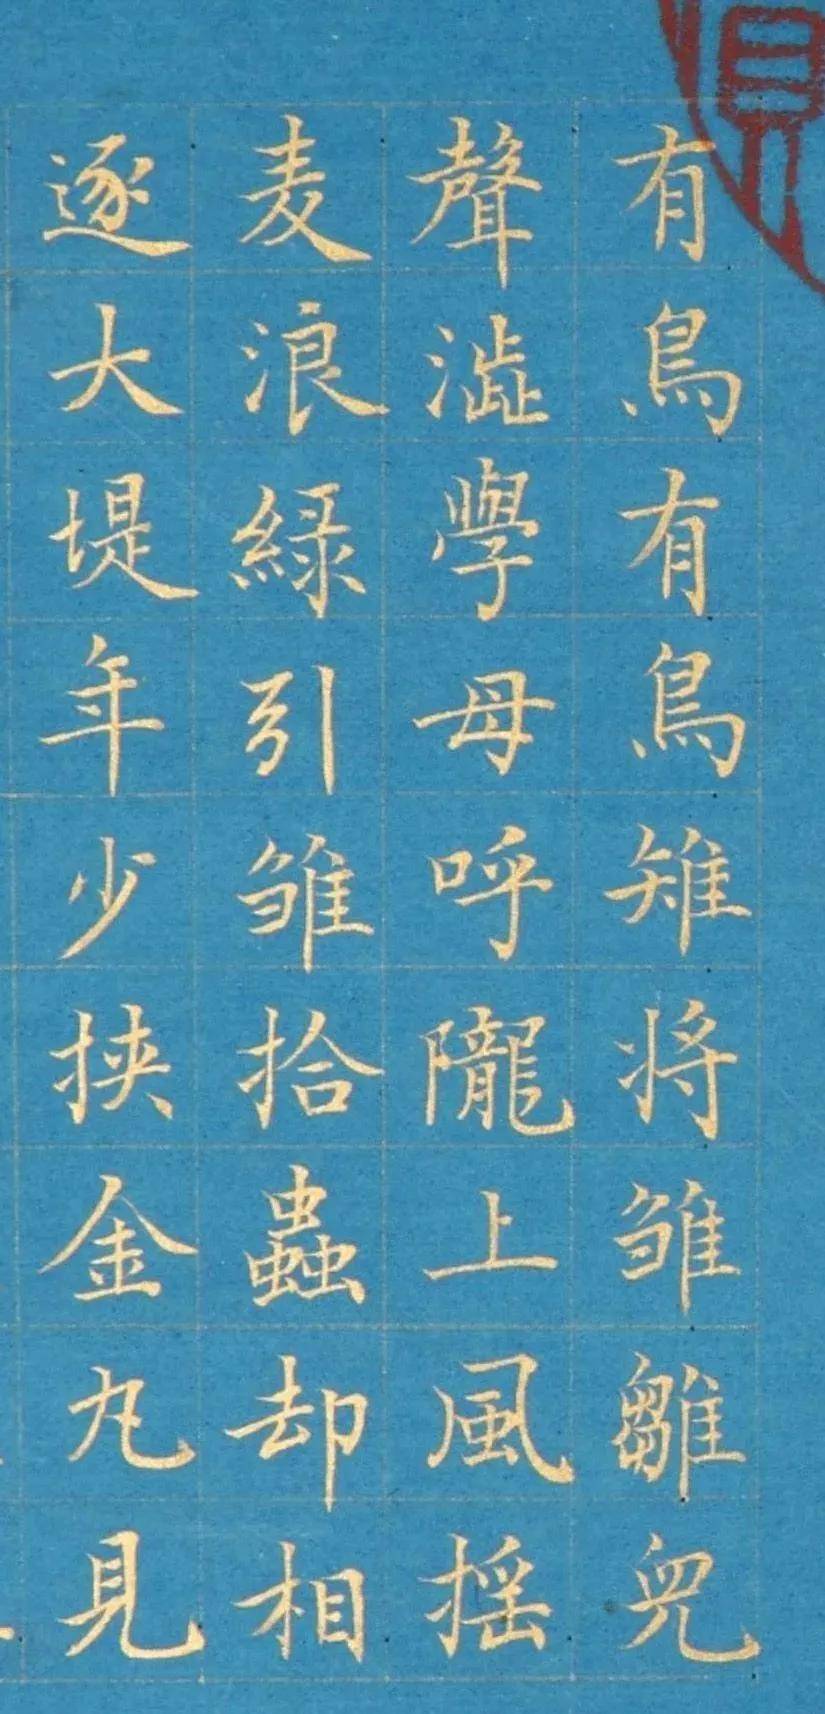 有鳥有鳥雉将雏雛兒
聲澁學母呼隴上風揺
麦浪緑引雏拾蟲却相
逐大堤年少挟金丸見